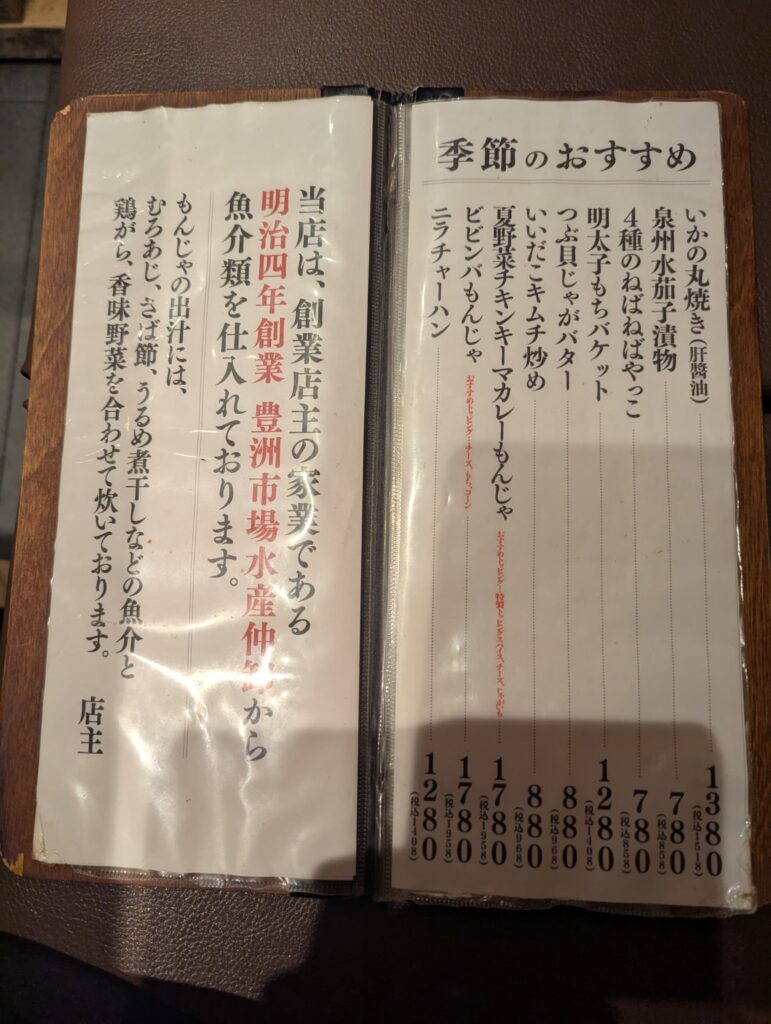 季節のおすすめ
いかの丸焼き(肝醬油) 1380 (税込1518)
泉州水茄子漬物 780 (税込858)
4種のねばねばやっこ 780 (税込858)
明太子もちバケット 1280 (税込1408)
つぶ貝じゃがバター 880 (税込968)
いいだこキムチ炒め 880 (税込968)
夏野菜チキンキーマカレーもんじゃ おすすめトッピング…特製トッピングスパイス、チーズ、じゃがいも 1780 (税込1958)
ビビンバもんじゃ おすすめトッピング…チーズ、もち、コーン 1780 (税込1958)
ニラチャーハン 1280 (税込1408)
当店は、創業店主の家業である
明治四年創業 豊洲市場水産仲卸から
魚介類を仕入れております。
もんじゃの出汁には、
むろあじ、さば節、うるめ煮干しなどの魚介と
鶏がら、香味野菜を合わせて炊いております。
店主